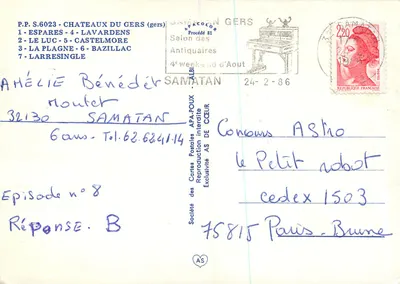 P.P. S.6023 - CHATEAUX DU GERS (gers)
1 - ESPARES - 4 - LAVARDENS
2 - LE LUC - 5 - CASTELMORE
3 - LA PLAGNE - 6 - BAZILLAC
7 - LARRESINGLE
AMÉLIE Bénédét
Montet
32130 SAMATAN
6 ans - Tel: 62-6241-14
Episode n° 8
Réponse. B
APACOUEUR
Procédé EI
Société des Cartes Postales APA-POUX
Reproduction interdite
Exclusivité AS DE CŒUR
AS
GERS
Salon des
Antiquaires
4e week end d'Aout
SAMATAN
24-2-86
2,20
REPUBLIQUE FRANCAISE
Concours ASTRO
le Petit robot
cedex 1503
75815 Paris-Brune